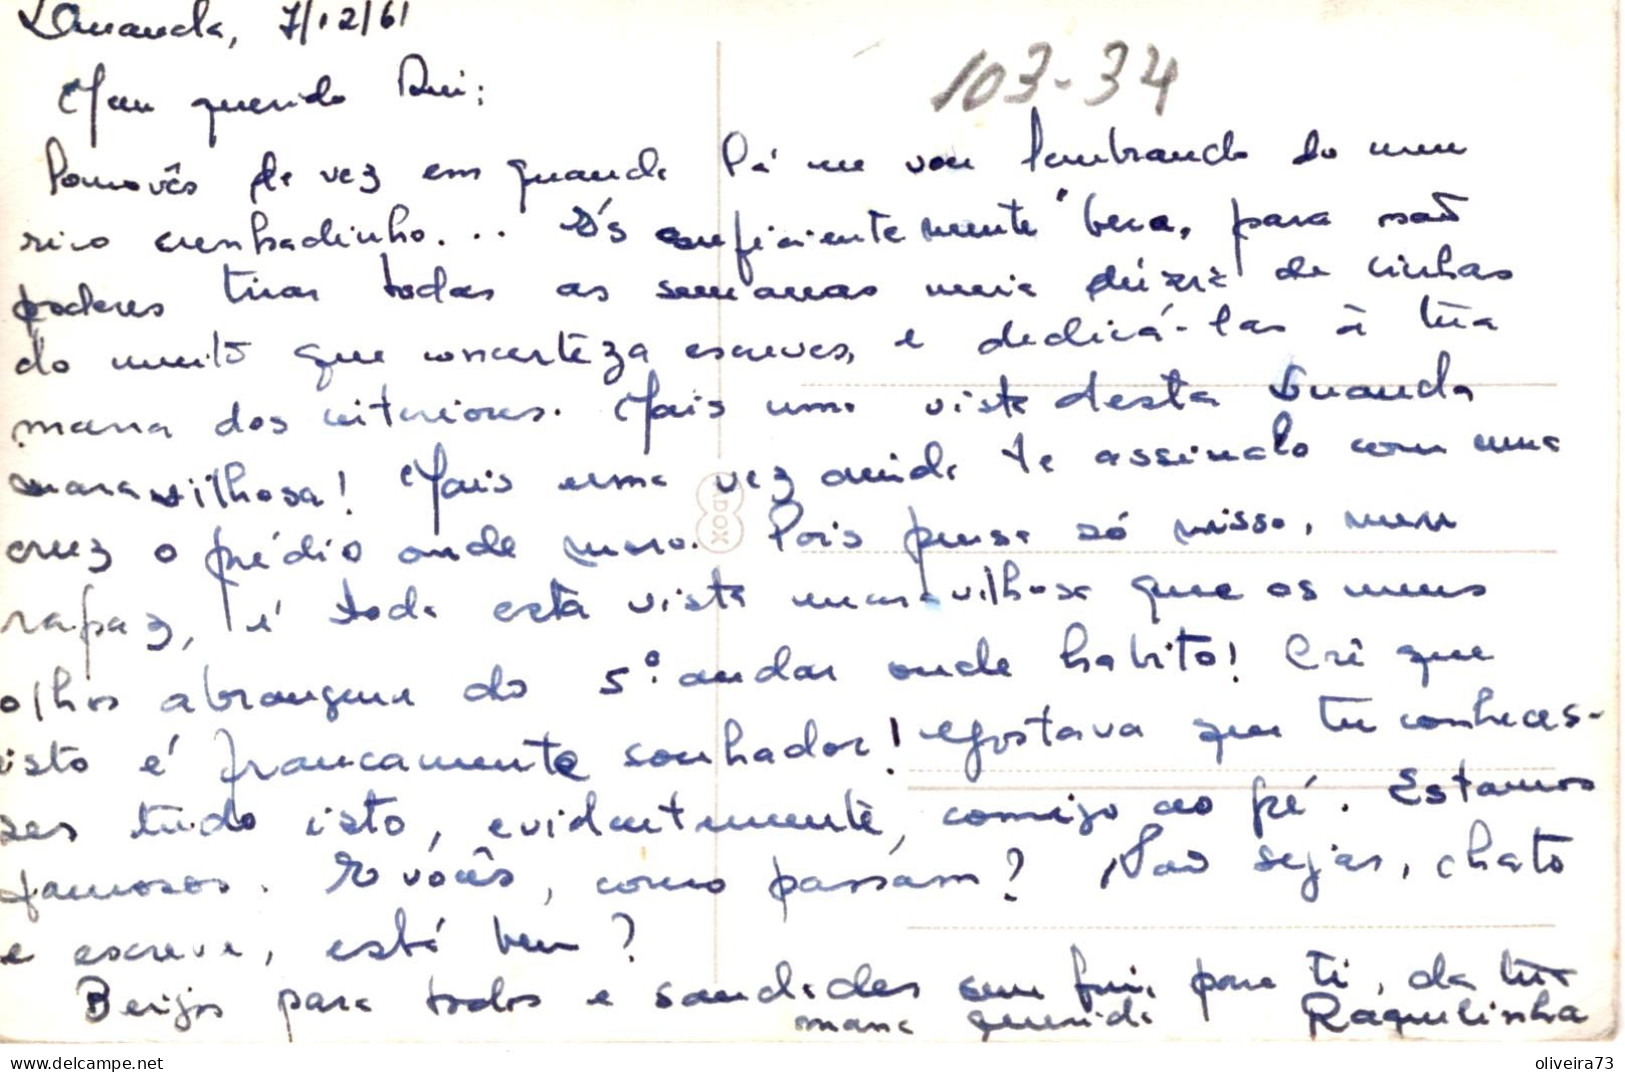 Luanda, 7/12/61
103-34
Meu querido Rui:
Como vês de vez em quando lá me vou lembrando do meu
rico cunhadinho... És suficientemente "bera, para não
poderes tirar todas as semanas meia dúzia de linhas
do muito que concerteza escreves, e dedicá-las à tua
mana dos interiores. Mais uma vista desta Luanda
maravilhosa! Mais uma vez ainda te assinalo com uma
cruz o prédio onde moro. Pois pensa só nisso, meu
rapaz, é toda esta vista maravilhosa que os meus
olhos abrangem do 5º. andar onde habito! Crê que
isto é francamente sonhador! Gostava que tu conheces-
ses tudo isto, evidentemente, comigo ao pé. Estamos
famosos. E vócês, como passam? Não sejas, chato
e escreve, está bem?
Beijos para todos e saudades sem fim para ti, da tua
mana querida Raquelinha
ADOX
oliveira73